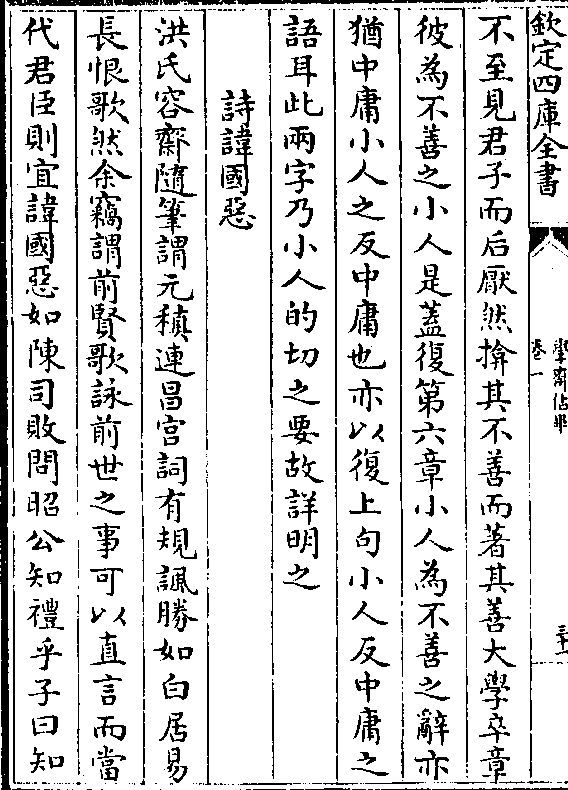 欽定四庫全書
學齋佔畢
卷一
不至見君子而后厭然揜其不善而著其善大學卒章
彼為不善之小人是蓋復第六章小人為不善之辭亦
猶中庸小人之反中庸也亦以復上句小人反中庸之
語耳此兩字乃小人的切之要故詳明之
詩諱國惡
洪氏容齋隨筆謂元稹連昌宮詞有規諷勝如白居易
長恨歌然余竊謂前賢歌詠前世之事可以直言而當
代君臣則宜諱國惡如陳司敗問昭公知禮乎子曰知